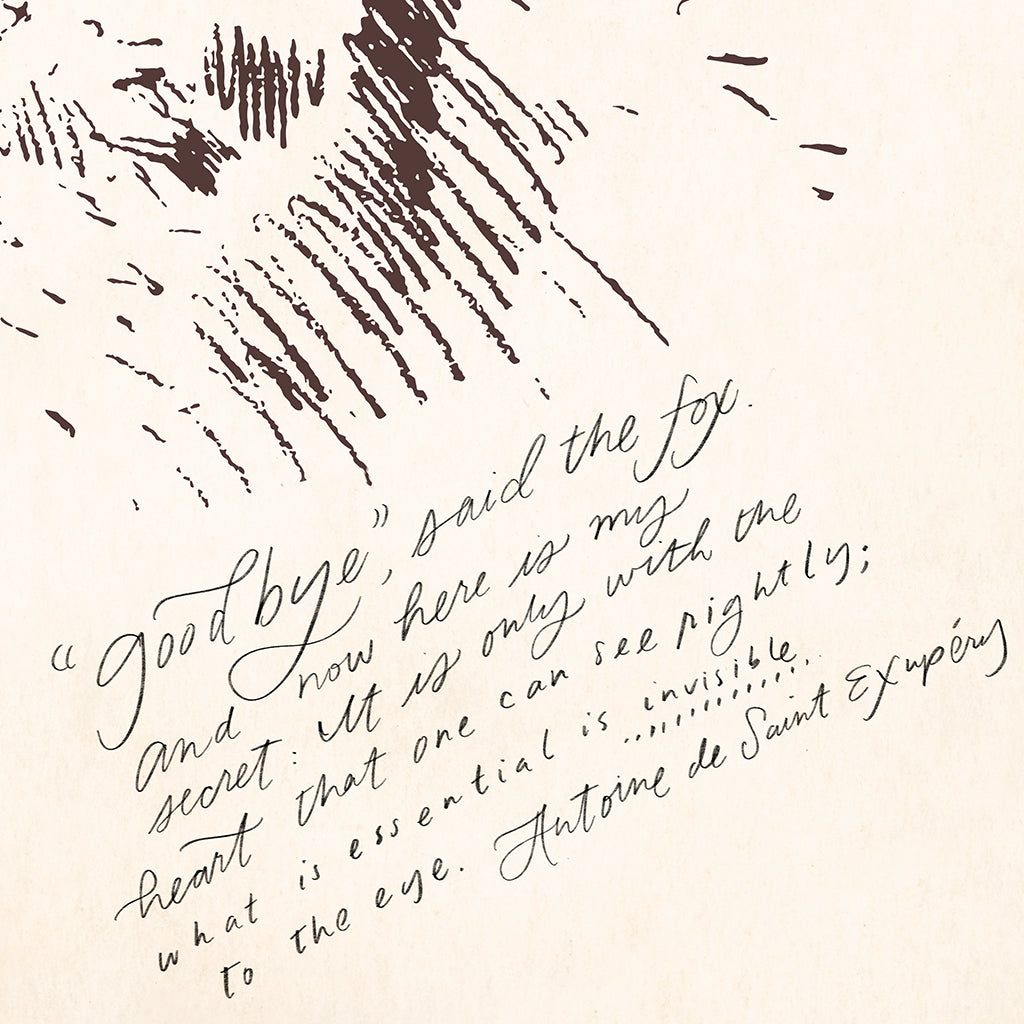 "goodbye", said the fox.
and now here is my
secret: It is only with the
heart that one can see rightly;
what is essential is invisible
to the eye. Antoine de Saint Exupéry